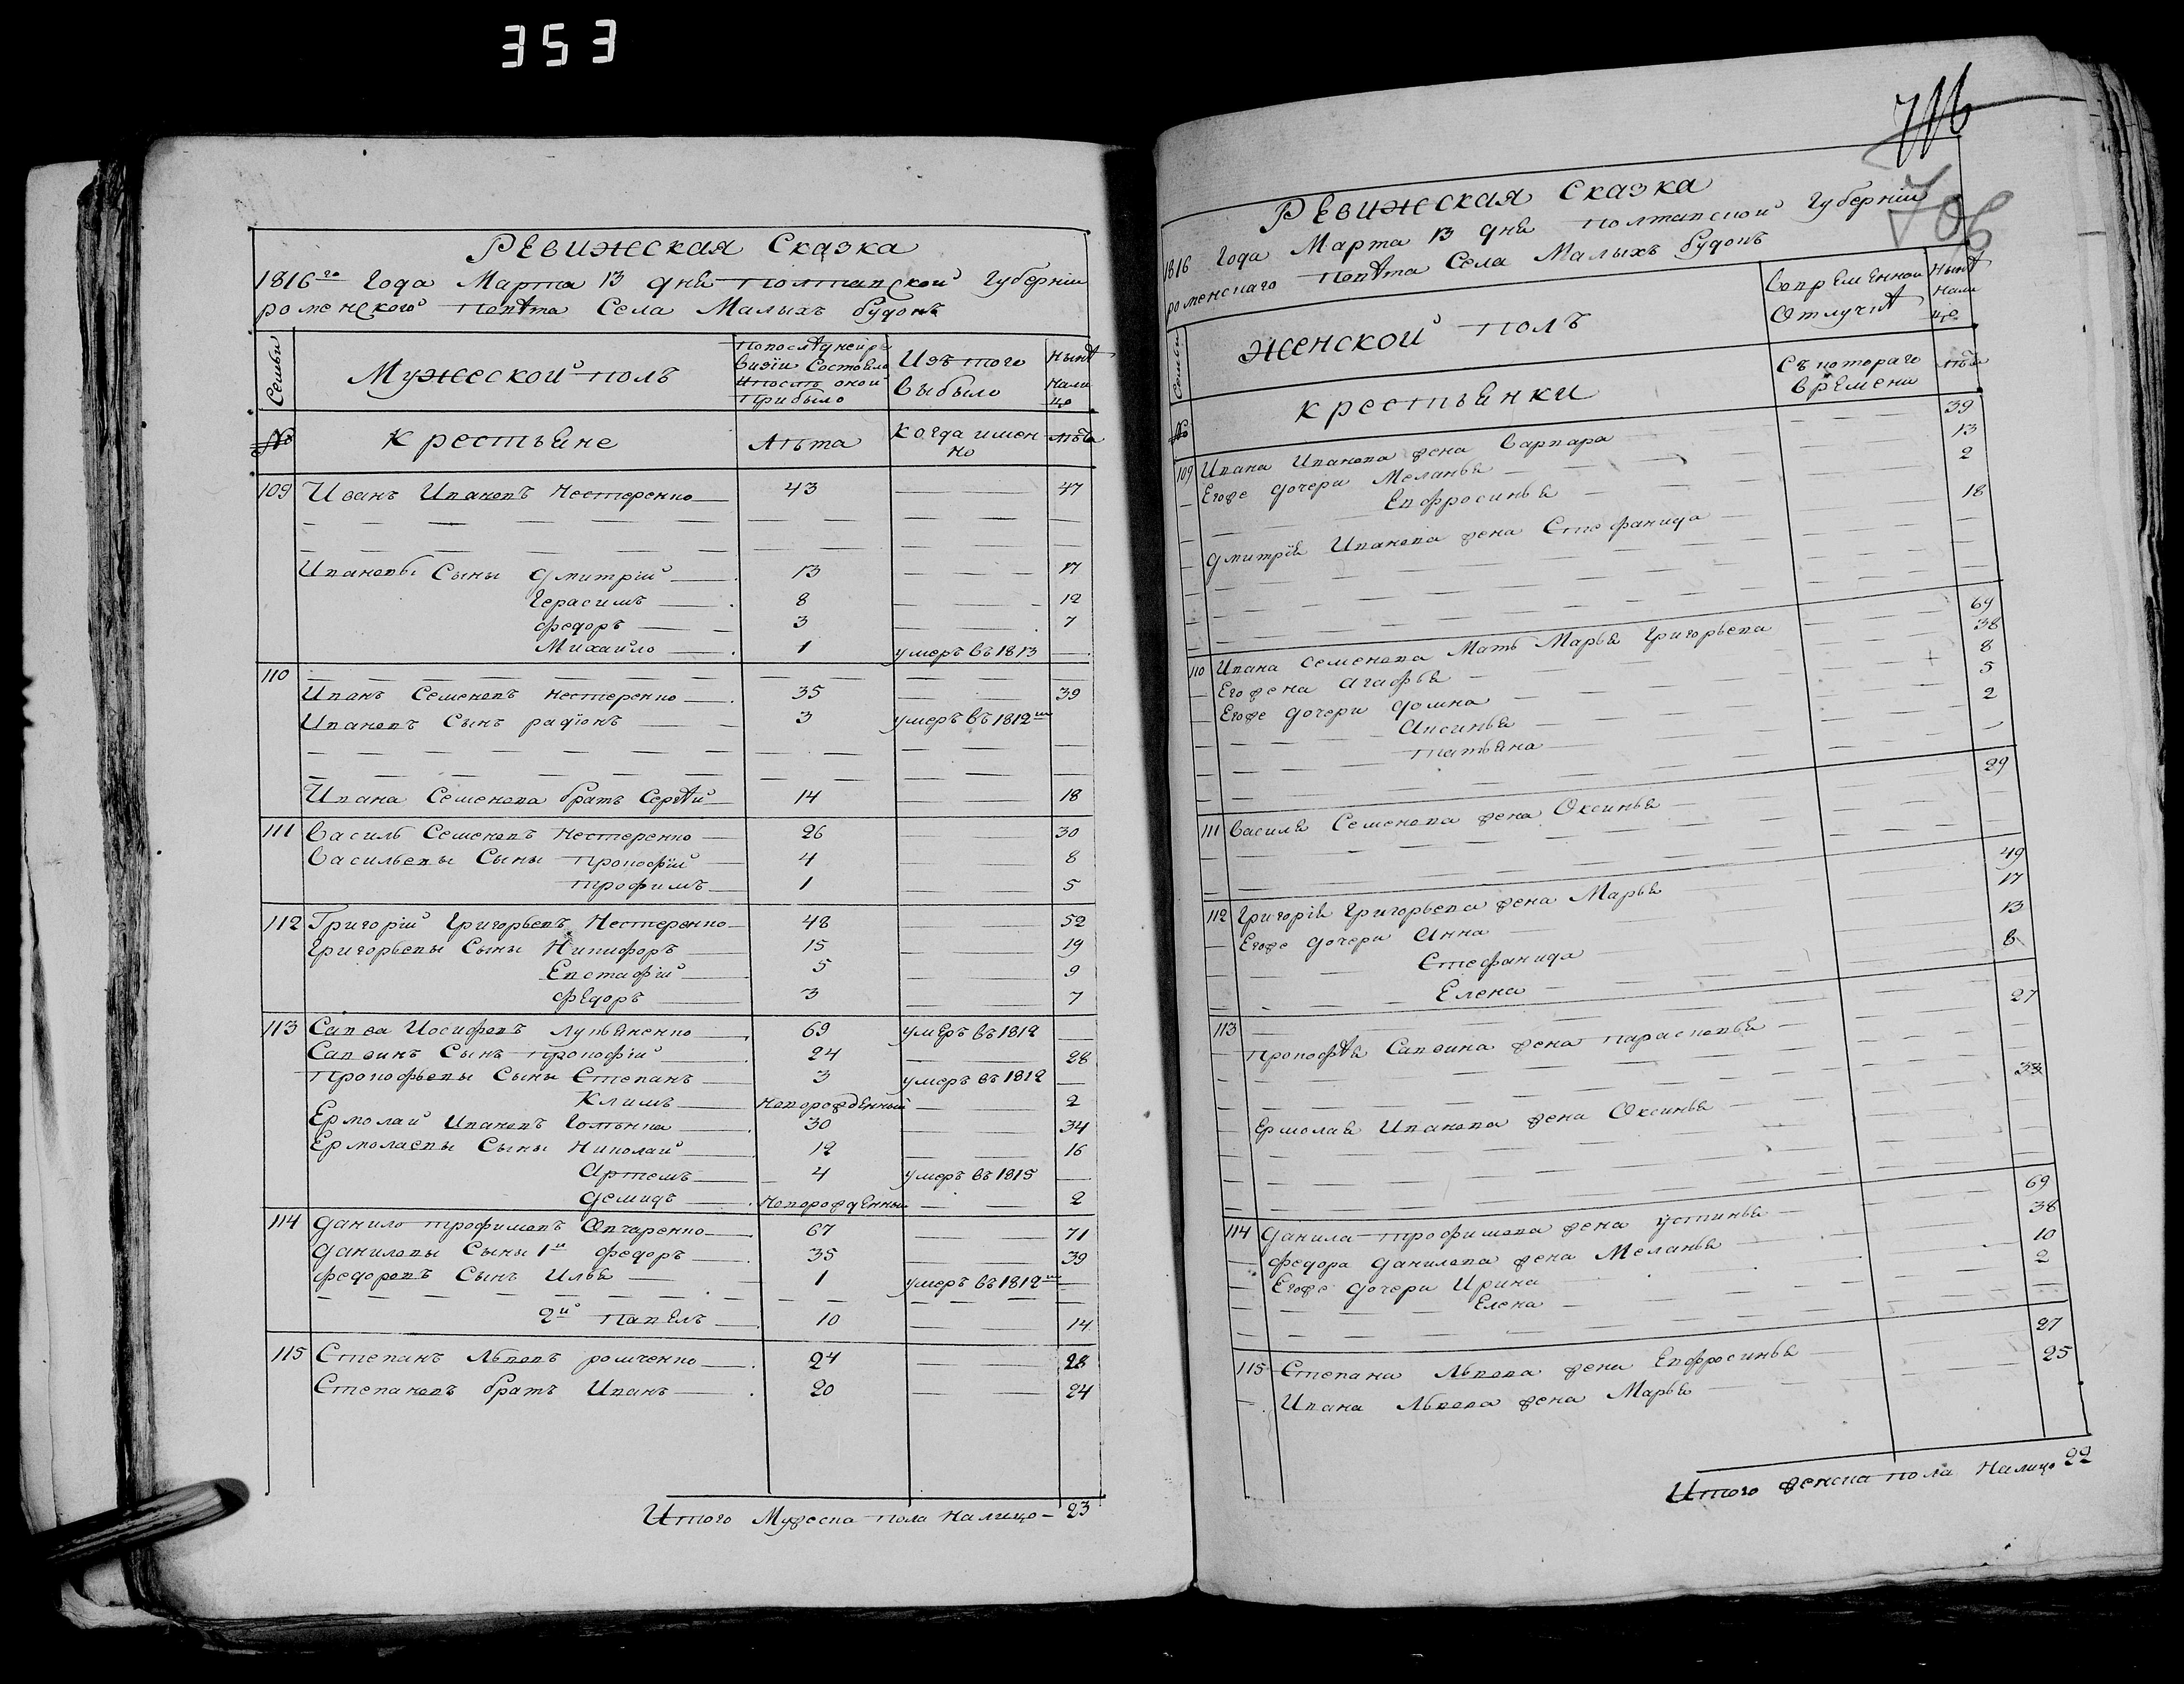 353
Ревижская Сказка
1816го Года Марта 13 дня Полтавской Губернїи
роменского Повѣта Села Малыхъ Будокъ
Семьи
Мужеской полъ
По последней ре
визїи Состояло
и после оной
прибыло
Изъ того
выбыло
Нынѣ
нали
цо
№
крестьяне
Лѣта
когда имен
но
лѣта
109 Иванъ Ивановъ Нестеренко 43 47
Ивановы Сыны Дмитрїй 13 17
Герасимъ 8 12
Федоръ 3 7
Михайло 1 умеръ въ 1813
110
Иванъ Семеновъ Нестеренко 35 39
Ивановъ Сынъ Радїонъ 3 умеръ въ 1812м
Ивана Семенова братъ Сергѣй 14 18
111 Василь Семеновъ Нестеренко 26 30
Васильевы Сыны Прокофїй 4 8
Трофимъ 1 5
112 Григорїй Григорьевъ Нестеренко 48 52
Григорьевы Сыны Никифоръ 15 19
Евстафїй 5 9
Федоръ 3 7
113 Савва Иосифовъ Лукьяненко 69 умеръ въ 1812
Саввинъ Сынъ Прокофїй 24 28
Прокофьевы Сыны Степанъ 3 умеръ въ 1812
Климъ Новорожденный 2
Ермолай Ивановъ 30 34
Ермолаевы Сыны Николай 12 16
Артемъ 4 умеръ въ 1815
Демидъ Новорожденный 2
114 Данило Трофимовъ Овчаренко 67 71
Даниловы Сыны 1й Федоръ 35 39
Федоровъ Сынъ Илья 1 умеръ въ 1812м
2й Павелъ 10 14
115 Степанъ Львовъ Ромченко 24 28
Степановъ братъ Иванъ 20 24
Итого Мужеска пола налицо 23
706
Ревижская Сказка
1816 Года Марта 13 дня Полтавской Губернїи
роменскаго Повѣта Села Малыхъ Будокъ
Семьи
Женской полъ
Во временной
Отлучкѣ
Нынѣ
нали
цо
№
крестьянки
Съ котораго
времени
лѣта
109 Ивана Иванова жена Варвара 39
Егоже дочери Меланья 13
Евфросинья 2
Дмитрїя Иванова жена Стефанида 18
110 Ивана Семенова Мать Марья Григорьева 69
Его жена Агафья 38
Егоже дочери Домна 8
Аксинья 5
Татьяна 2
111 Василя Семенова жена Оксинья 29
112 Григорїя Григорьева жена Марья 49
Егоже дочери Анна 17
Стефанида 13
Елена 8
113
Прокофѣя Саввина жена Парасковья 27
Ермолая Иванова жена Оксинья 33
114 Данила Трофимова жена Устинья 69
Федора Данилова жена Меланья 38
Егоже дочери Ирина 10
Елена 2
115 Степана Львова жена Евфросинья 27
Ивана Львова жена Марья 25
Итого женска пола налицо 22